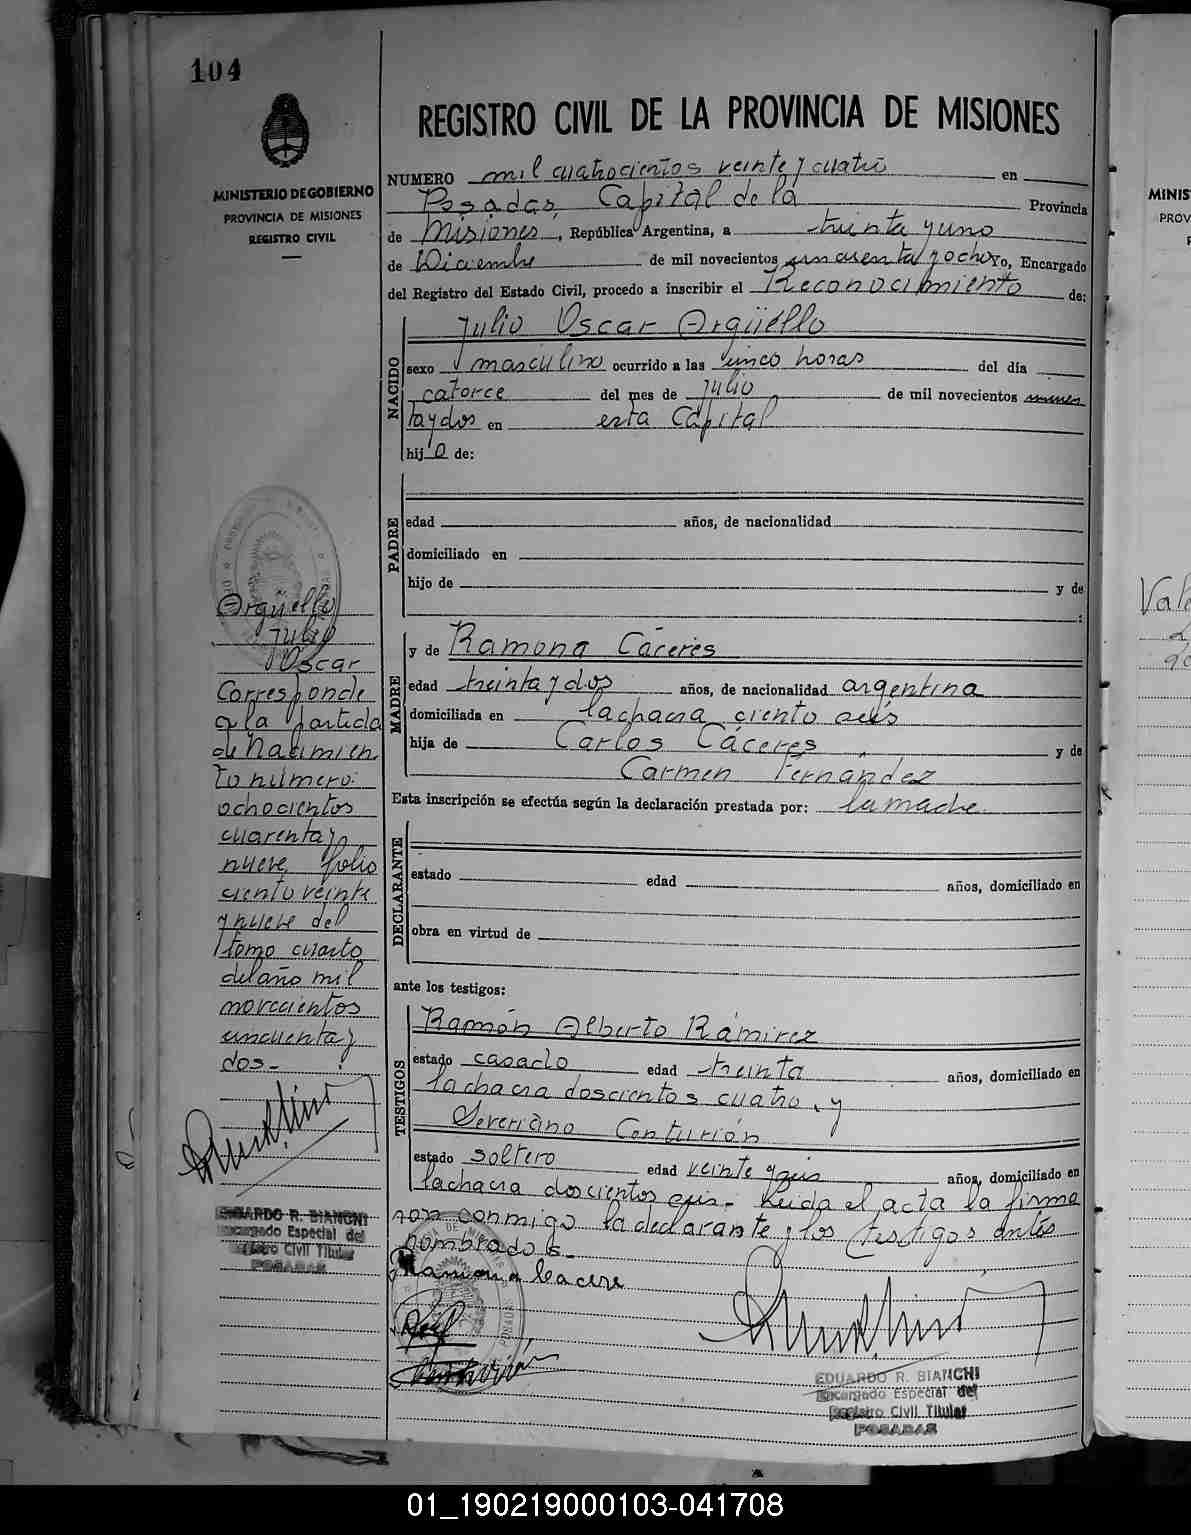 104
MINISTERIO DE GOBIERNO
PROVINCIA DE MISIONES
REGISTRO CIVIL
REGISTRO CIVIL DE LA PROVINCIA DE MISIONES
NUMERO mil cuatrocientos veinte y cuatro en
Posadas, Capital de la Provincia
de Misiones, República Argentina, a treinta y uno
de Diciembre de mil novecientos cincuenta y ocho Yo, Encargado
del Registro del Estado Civil, procedo a inscribir el Reconocimiento de:
NACIDO
Julio Oscar Argüello
sexo masculino ocurrido a las cinco horas del día
catorce del mes de julio de mil novecientos cincuen
ta y dos en esta Capital
hijo de:
PADRE
edad años, de nacionalidad
domiciliado en
hijo de y de
:
MADRE
y de Ramona Cáceres
edad treinta y dos años, de nacionalidad argentina
domiciliada en la chacra ciento seis
hija de Carlos Cáceres y de
Carmen Fernández
Esta inscripción se efectúa según la declaración prestada por: la madre.
DECLARANTE
estado edad años, domiciliado en
obra en virtud de
ante los testigos:
TESTIGOS
Ramón Alberto Rámirez
estado casado edad treinta años, domiciliado en
la chacra doscientos cuatro, y
Severiano Centurión
estado soltero edad veinte y seis años, domiciliado en
la chacra doscientos seis. Leida el acta la firma
ron conmigo la declarante y los testigos antes
nombrados.
Ramona Cacere
EDUARDO R. BIANCHI
Encargado Especial del
Registro Civil Titular
POSADAS
Argüello
Julio
Oscar
Corresponde
a la partida
de Nacimien
to número:
ochocientos
cuarenta y
nueve, folio
ciento veinte
y nueve del
tomo cuarto
del año mil
novecientos
cincuenta y
dos.
EDUARDO R. BIANCHI
Encargado Especial del
Registro Civil Titular
POSADAS
MINIS
PROV
01_190219000103-041708